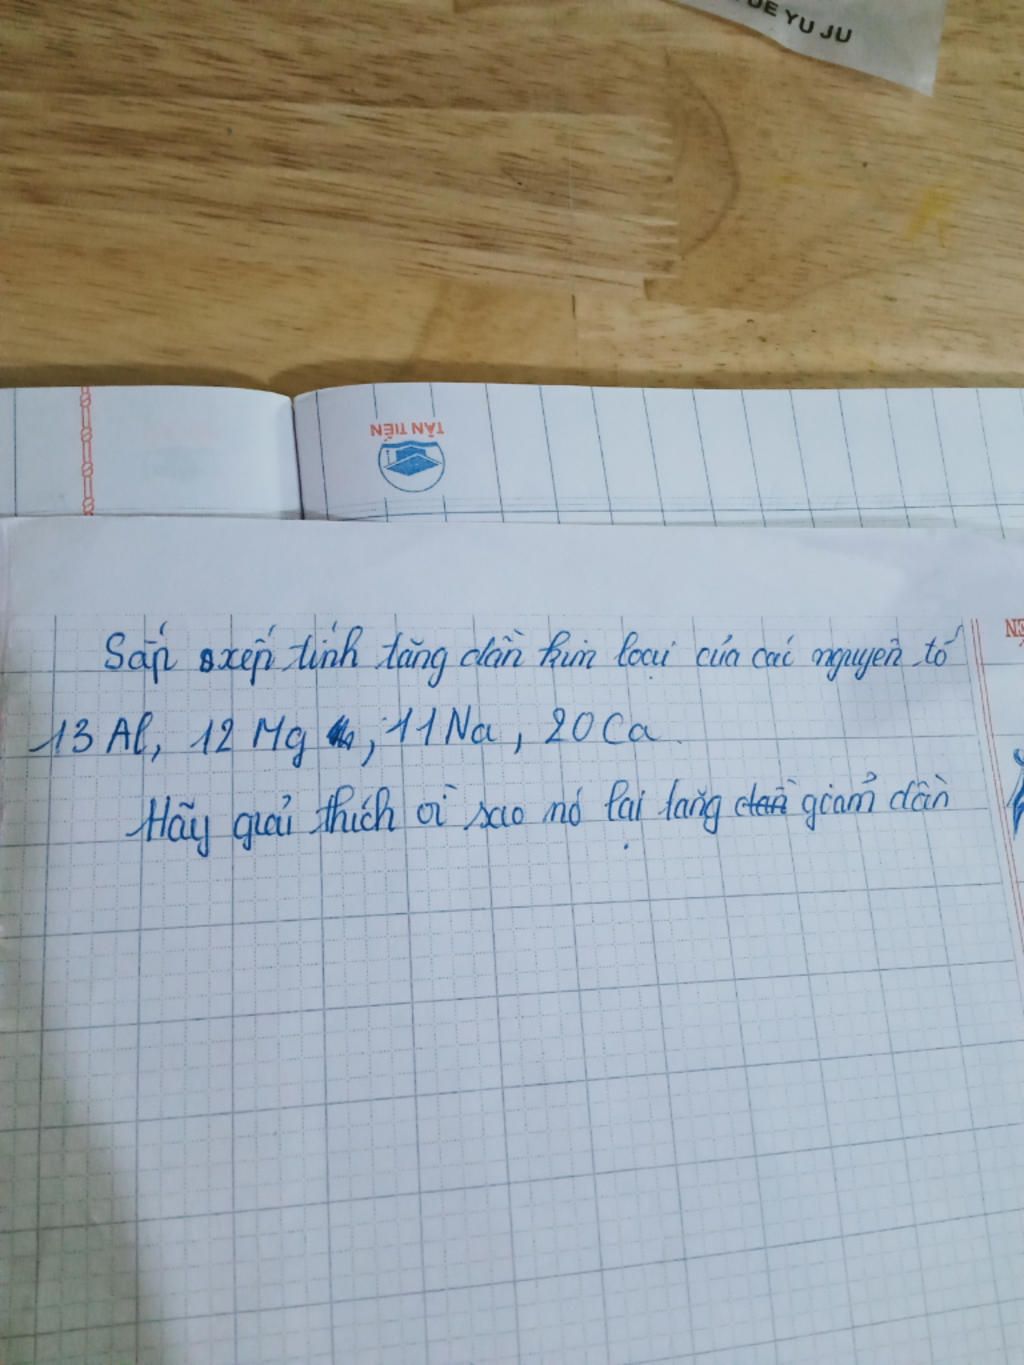 DE YU JU
TÂN TIẾN
Sắp xếp tính tăng dần kim loại của các nguyên tố
13 Al, 12 Mg, 11 Na, 20 Ca.
Hãy giải thích vì sao nó lại tăng dần giảm dần